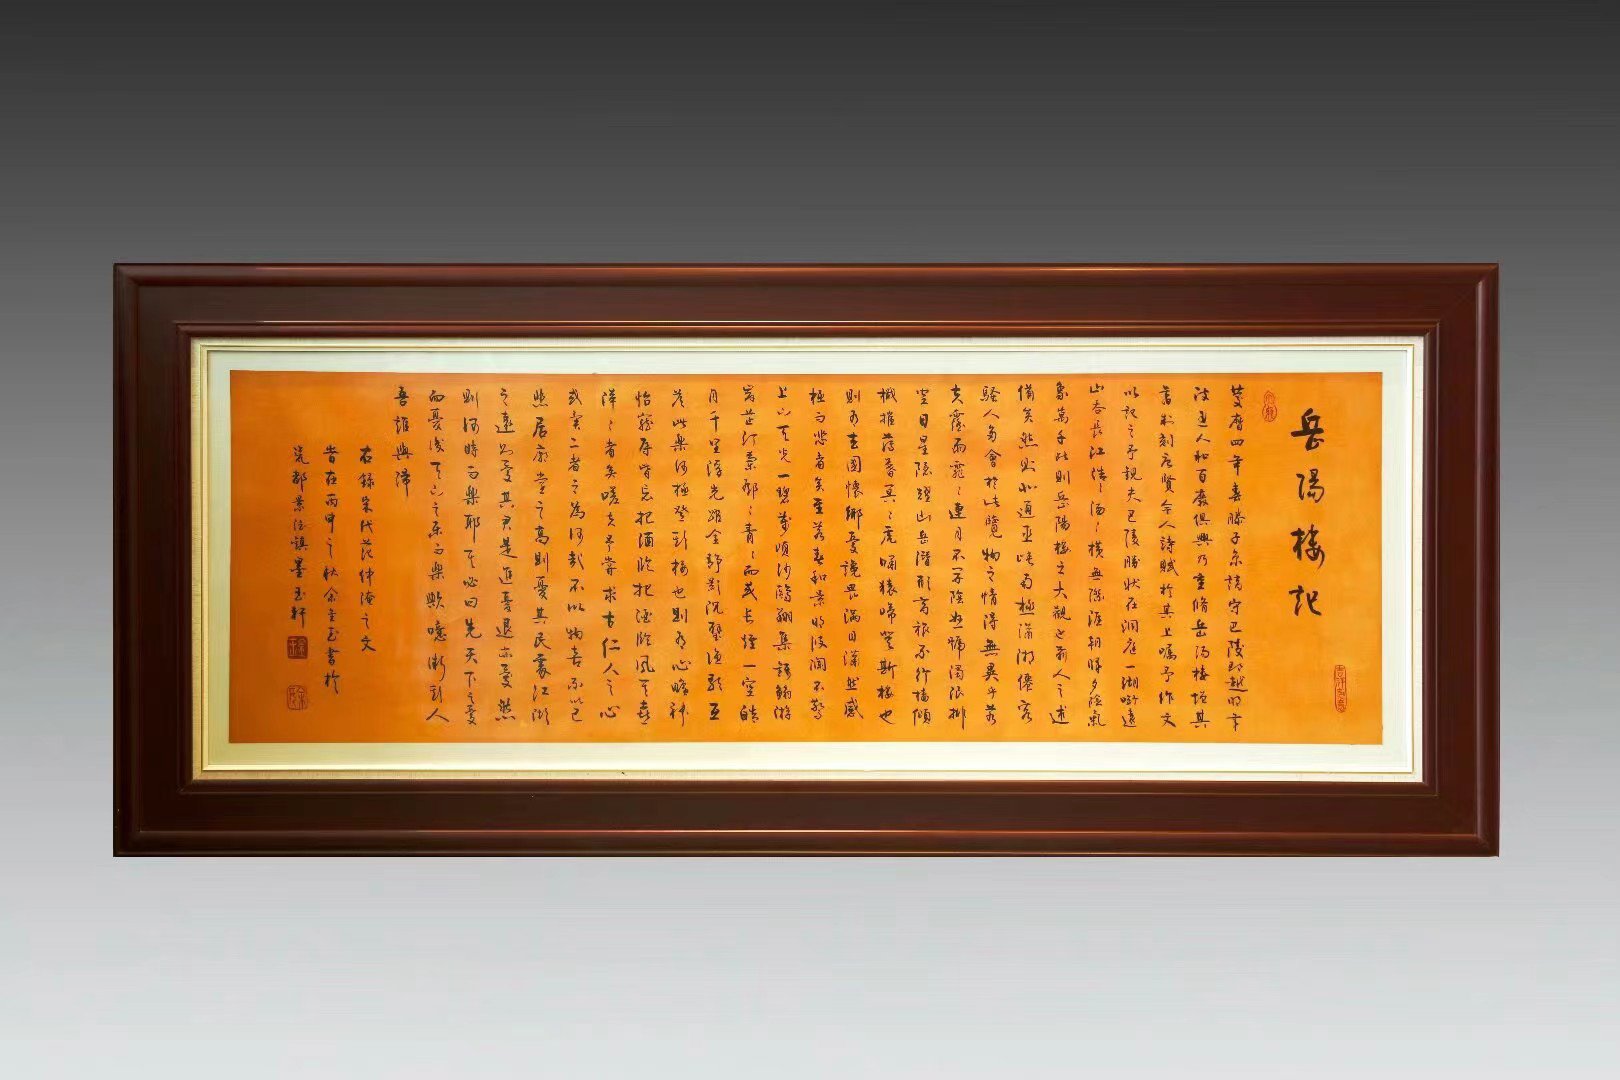 岳陽樓記
慶曆四年春滕子京謫守巴陵郡越明年
政通人和百廢俱興乃重脩岳陽樓增其
舊制刻唐賢今人詩賦於其上囑予作文
以記之予觀夫巴陵勝狀在洞庭一湖啣遠
山吞長江浩〻湯〻橫無際涯朝暉夕陰氣
象萬千此則岳陽樓之大觀也前人之述
備矣然則北通巫峽南極瀟湘遷客
騷人多會於此覽物之情得無異乎若
夫霪雨霏〻連月不開陰風怒號濁浪排
空日星隱耀山岳潛形商旅不行檣傾
楫摧薄暮冥〻虎嘯猿啼登斯樓也
則有去國懷鄉憂讒畏滿目蕭然感
極而悲者矣至若春和景明波瀾不驚
上下天光一碧萬頃沙鷗翔集錦鱗游
岸芷汀蘭郁〻青〻而或長煙一空皓
月千里浮光躍金靜影沉璧漁歌互
答此樂何極登斯樓也則有心曠神
怡寵辱皆忘把酒臨風其喜
洋〻者矣嗟夫予嘗求古仁人之心
或異二者之為何哉不以物喜不以己
悲居廟堂之高則憂其民處江湖
之遠則憂其君是進憂退亦憂然
則何時而樂耶其必曰先天下之憂
而憂後天下之樂而樂歟噫微斯人
吾誰與歸
右錄宋代范仲淹之文
時在丙申之秋余金書於
瓷都景德鎮墨玉軒